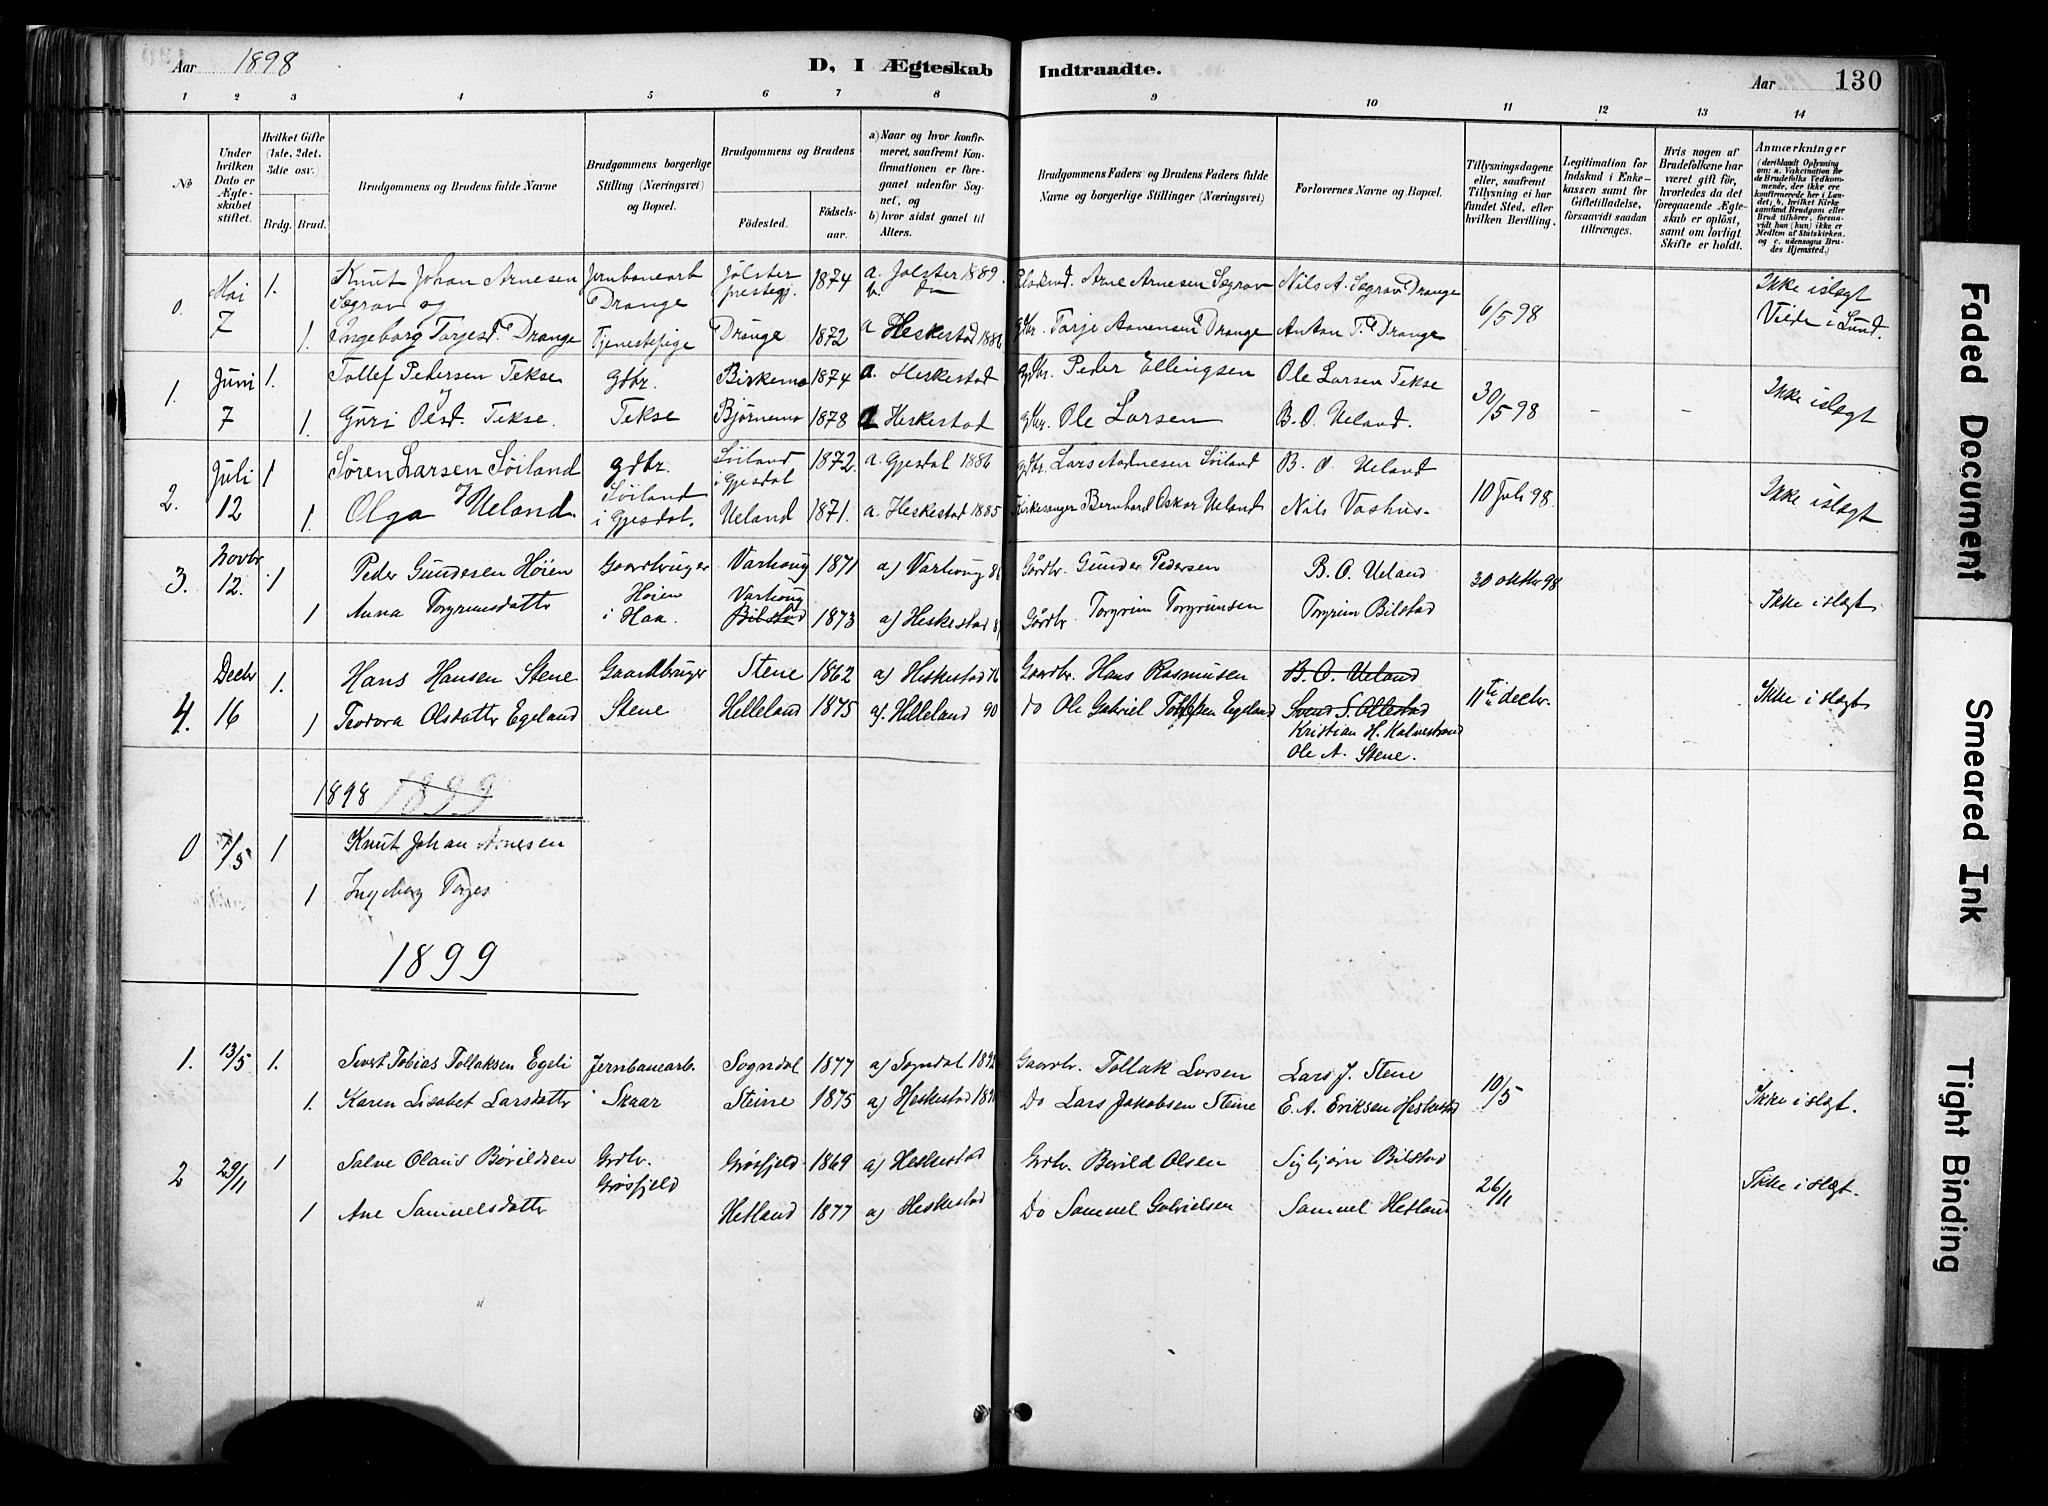 Aar 1898
D, I Ægteskab Indtraadte.
Aar 130
1 2 3 4 5 6 7 8 9 10 11 12 13 14
No
Under hvilken Dato er Ægteskabet stiftet.
Hvilket Gifte (1ste, 2det, 3die osv.)
Brdg. Brud.
Brudgommens og Brudens fulde Navne
Brudgommens borgerlige Stilling (Næringsvei) og Bopæl.
Brudgommens og Brudens
Fødested. Fødselsaar.
a) Naar og hvor konfirmeret, saafremt Konfirmationen er foregaaet udenfor Sognet, og
b) hvor sidst gaaet til Alters.
Brudgommens Faders og Brudens Faders fulde Navne og borgerlige Stillinger (Næringsvei)
Forlovernes Navne og Bopæl.
Tillysningsdagene eller, saafremt Tillysning ei har fundet Sted, efter hvilken Bevilling.
Legitimation for Indskud i Enkekassen samt for Giftetilladelse, forsaavidt saadan tiltrænges.
Hvis nogen af Brudefolkene har været gift før, hvorledes da det foregaaende Ægteskab er opløst, samt om lovligt Skifte er holdt.
Anmærkninger
(deriblandt Oplysning om: a. Vakcination for de Brudefolks Vedkommende, der ikke ere konfirmerede her i Landet; b, hvilket Kirkesamfund Brudgom eller Brud tilhører, forsaavidt han (hun) ikke er Medlem af Statskirken, og c. udensogns Brudes Hjemsted.)
0. Mai 7 1. Knut Johan Arnesen Søgrov og Jernbanearb Drange Jølster prestegj. 1874 a. Jølster 1889. b. do Arne Arnesen Søgrov Nils A. Søgrov Drange 6/5 98 Ikke islægt
1. Ingeborg Torjesd. Drange Tjenestepige Drange 1872 a Heskestad 1886 gdbr. Torje Aanensen Drange Anton T. Drange Viede i Lund.
1. Juni 7 1. Tollef Pedersen Tekse gdbr. Birkemo 1874 a. Heskestad gdbr. Peder Ellingsen Ole Larsen Tekse 30/5 98 - - Ikke islægt
1. Guri Olsd. Tekse. Tekse Bjørnemo 1878 a Heskestad gdbr. Ole Larsen B. O. Ueland.
2. Juli 12 1 Søren Larsen Søiland gdbr. Søiland i Gjesdal 1872. a. Gjesdal 1886 gdbr. Lars Aadnesen Søiland B. O. Ueland 10 Juli 98. Ikke islægt
1. Olga Ueland. Søiland i Gjesdal. Ueland 1871. a. Heskestad 1885 Kirkesanger Bernhard Oskar Ueland Nils Vashus.
3. Novbr 12. 1 Peder Gundersen Høien Gaardbruger Varhoug 1871 a) Varhoug 86 Gårdbr. Gunder Pedersen B. O. Ueland 30 oktbr 98 Ikke islægt
1 Anna Torgrimsdatter Høien i Haa. Varhoug Bilstad 1873 a) Heskestad Gårdbr. Torgrim Torgrimsen Torgrim Bilstad
4. Decbr 16 1. Hans Hansen Stene Gaardbruger Stene 1862 a) Heskestad 76 Gaardbr. Hans Rasmusen B. O. Ueland 11te decbr. Ikke islægt
1 Teodora Olsdatter Egeland Stene Helleland 1875 a). Helleland 90 do Ole Gabriel Tollefsen Egeland Svend S. Ollestad
Kristian H. Kalvestrand
Ole A. Stene.
1898 1899
0 7/5 1 Knut Johan Arnesen
1 Ingeborg Torjes
1899
1. 13/5 1. Sivert Tobias Tollaksen Egeli Jernbanearb. Sogndal 1877 a) Sogndal 1892 Gaardbr. Tollak Larsen Lars J. Stene 10/5 Ikke i slægt.
1. Karen Lisabet Larsdatter Skaar Steine 1875 a) Heskestad Do Lars Jakobsen Steine E. A. Eriksen Heskestad
2 29/11 1 Salve Olaus Børildsen Grdbr. Grøsfjeld Grøsfjeld 1869 a) Heskestad Grdbr. Børild Olsen Sigbjørn Bilstad 26/11 Ikke i slægt.
1 Ane Samuelsdatter Hetland 1877 a) Heskestad Do Samuel Gabrielsen Samuel Hetland
Faded Document
Smeared Ink
Tight Binding